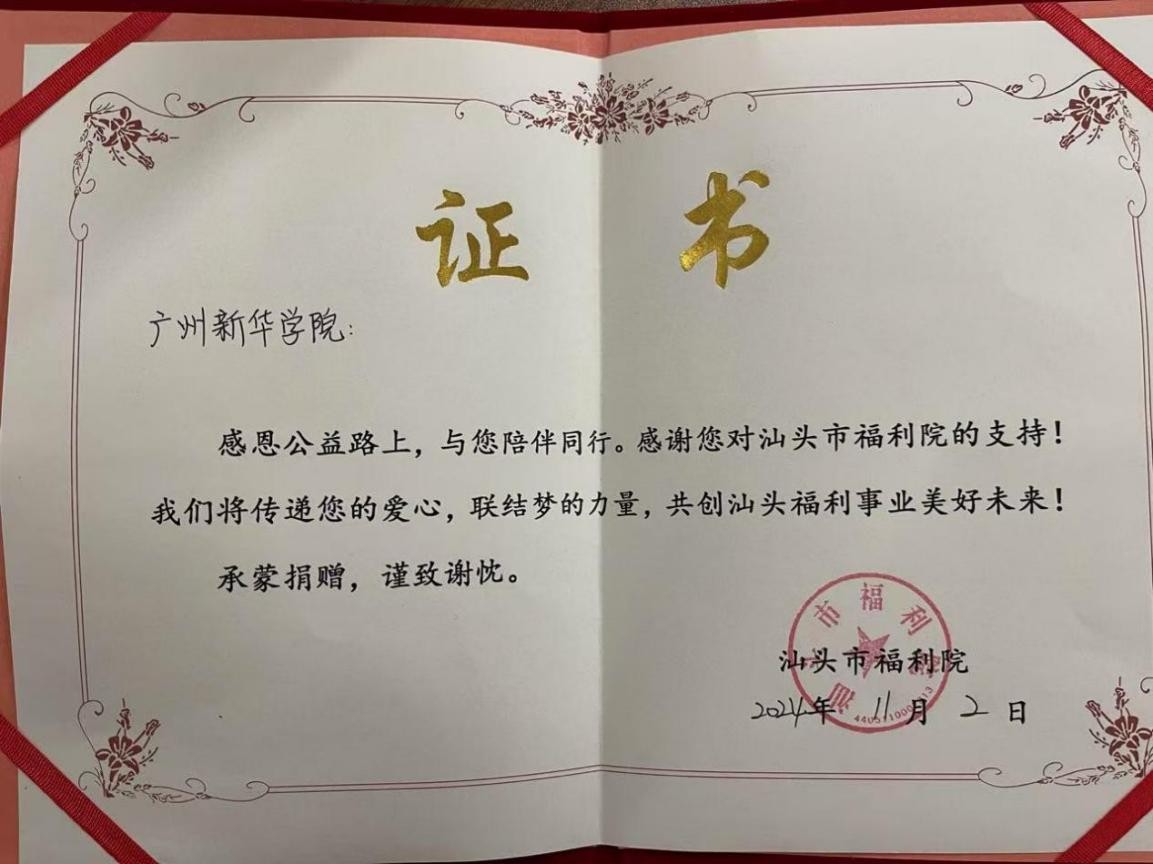 证 书
广州新华学院:
感恩公益路上，与您陪伴同行。感谢您对汕头市福利院的支持！
我们将传递您的爱心，联结梦的力量，共创汕头福利事业美好未来！
承蒙捐赠，谨致谢忱。
汕头市福利院
汕头市福利院
2024年 11月 2日